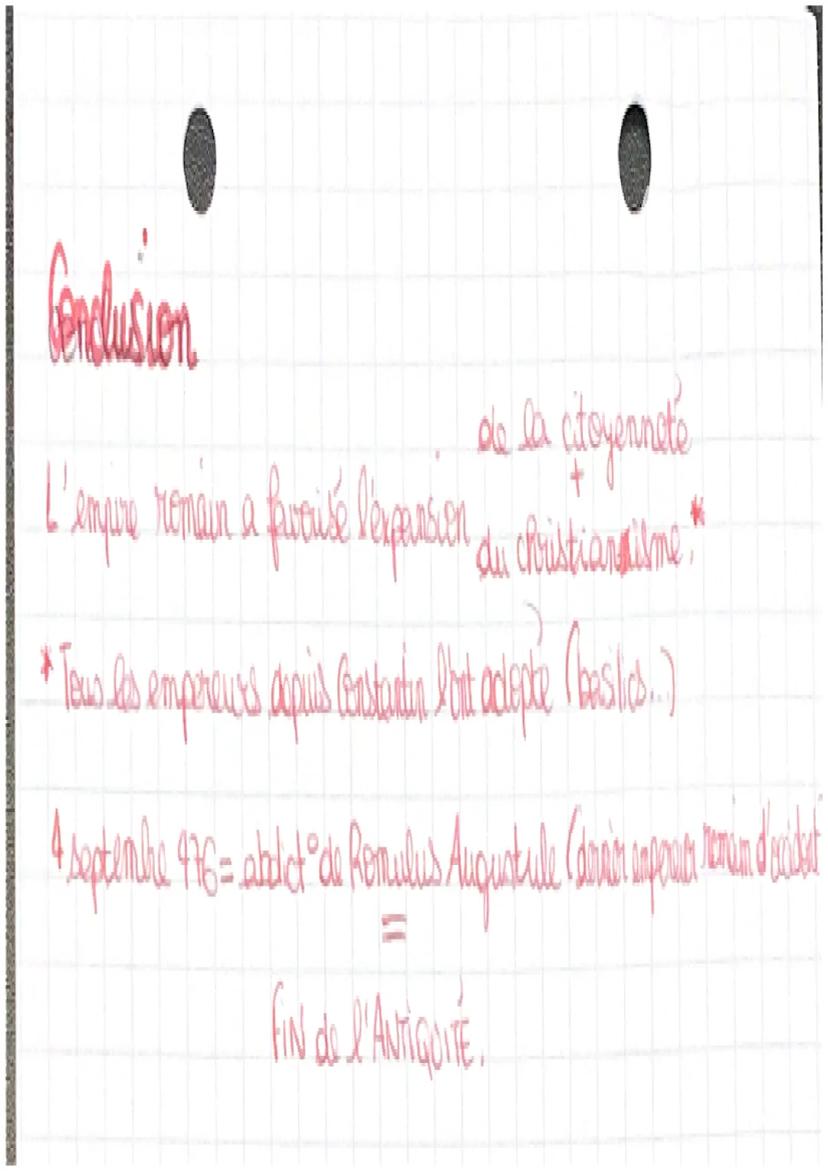 Conclusion
de la citoyenneté
+
L'empire romain a favorisé l'expansion
du christianisme.*
* Tous les empereurs depuis Constantin l'ont adopté (basilics...)
4 septembre 476 = abdict° de Romulus Augustule (dernier empereur romain d'occident
=
FIN de l'ANTIQUITÉ.